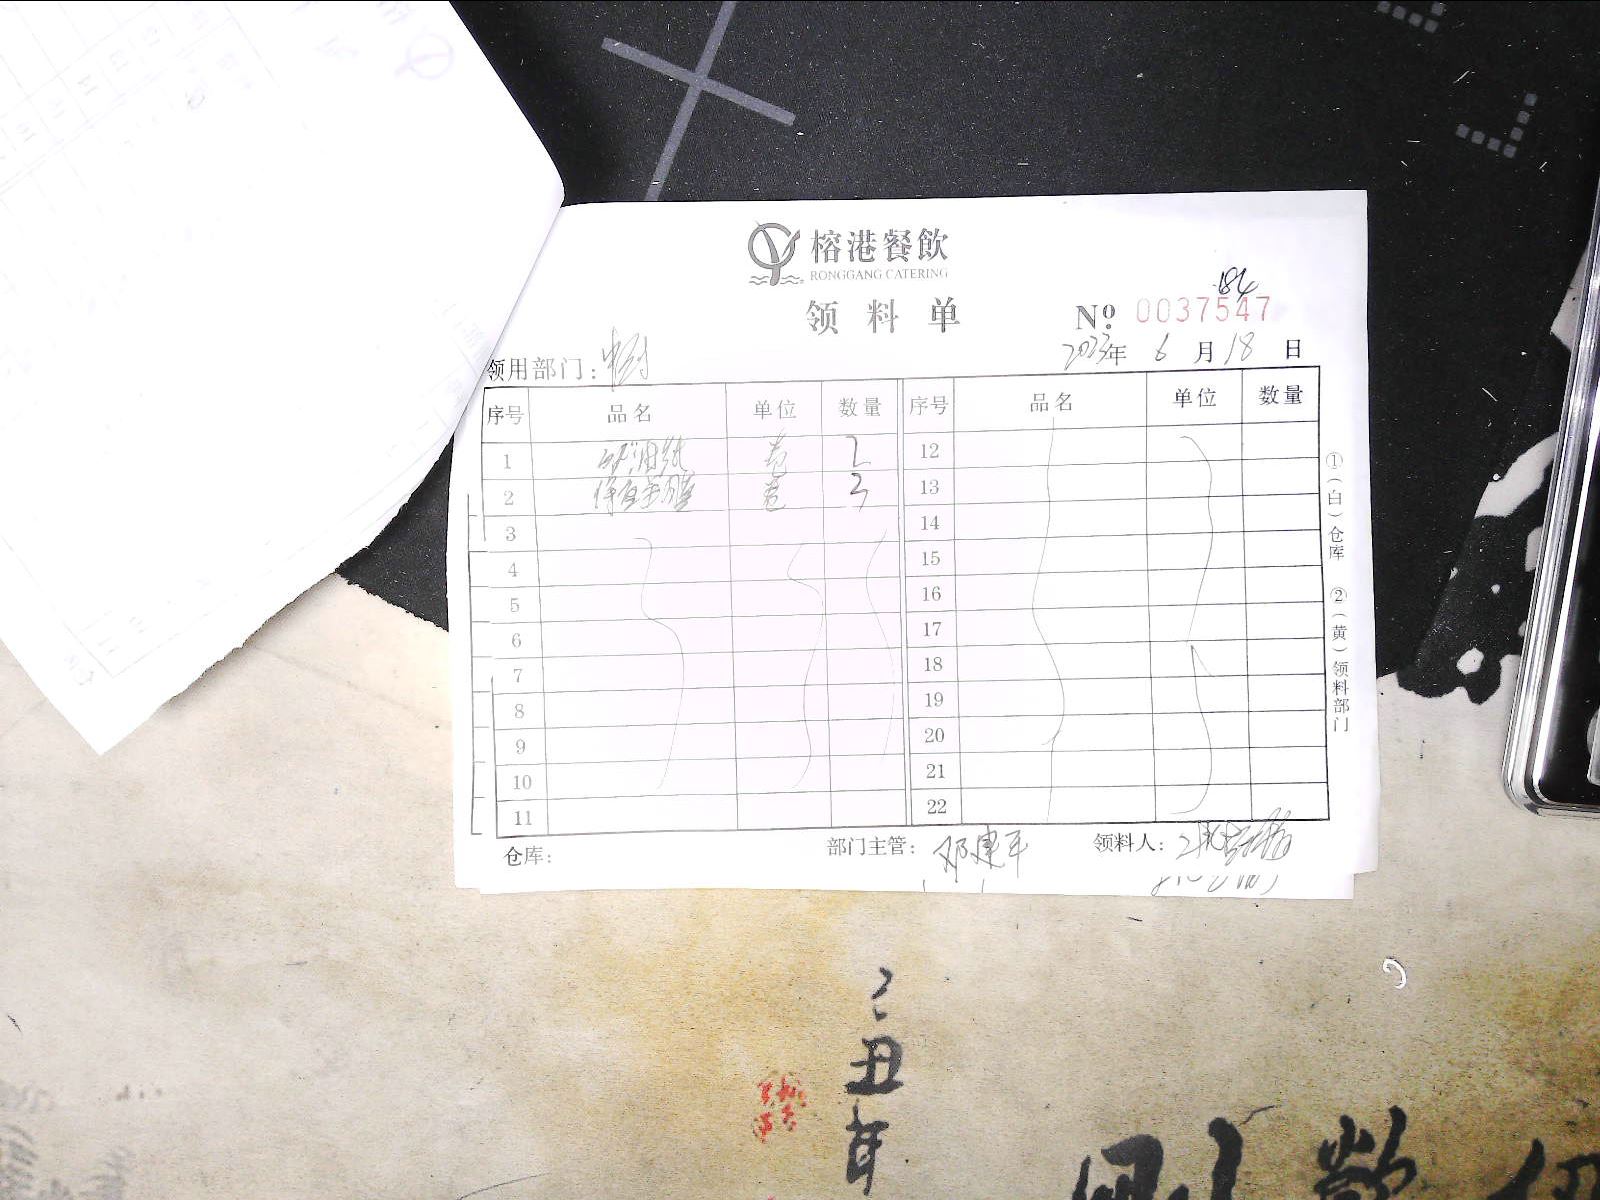 榕港餐飲
RONGGANG CATERING
领料单
184
№ 0037547
领用部门：中厨
2023年 6月18日
序号 品名 单位 数量 序号 品名 单位 数量
1 吸油纸 卷 2 12
2 卷 3 13
3 14
4 15
5 16
6 17
7 18
8 19
9 20
10 21
11 22
①（白）仓库 ②（黄）领料部门
仓库： 部门主管：邓建平 领料人：
丑年